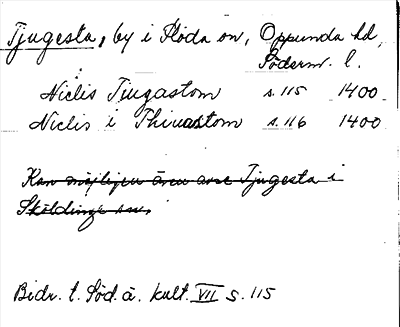 Tjugesta, by i Flöda sn, Oppunda hd,
Söderm. l.
Niclis Tiugastom s. 115 1400
Niclis i Thiuastom s. 116 1400
Kan möjligen även avse Tjugesta i
Sköldinge sn.
Bidr. t. Söd. ä. kult. VII s. 115